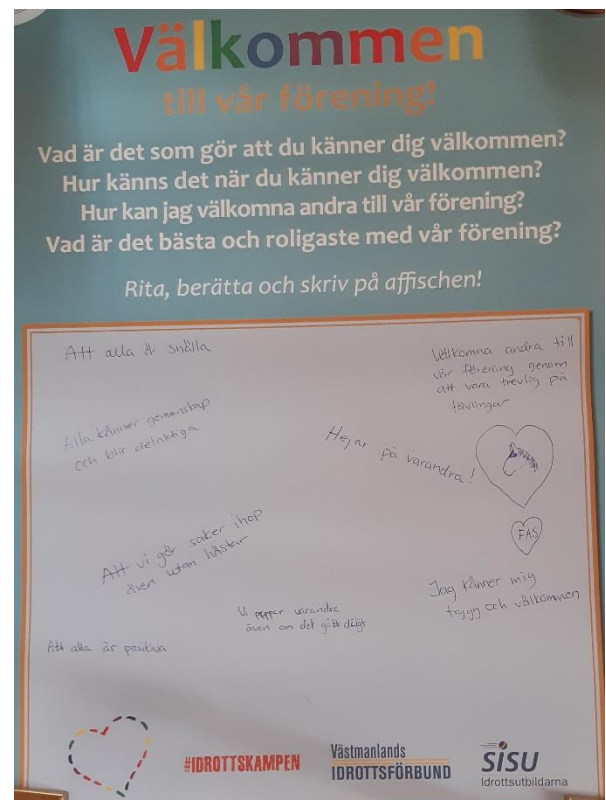 Välkommen
till vår förening!
Vad är det som gör att du känner dig välkommen?
Hur känns det när du känner dig välkommen?
Hur kan jag välkomna andra till vår förening?
Vad är det bästa och roligaste med vår förening?
Rita, berätta och skriv på affischen!
Att alla är snälla
Välkomna andra till
vår förening genom
att vara trevlig på
tävlingar
Alla känner gemenskap
och blir delaktiga
Hejar på varandra!
FAS
Att vi gör saker ihop
även utan hästar
Jag känner mig
trygg och välkommen
Vi peppar varandra
även om det gått dåligt
Att alla är positiva
#IDROTTSKAMPEN
Västmanlands
IDROTTSFÖRBUND
SISU
Idrottsutbildarna